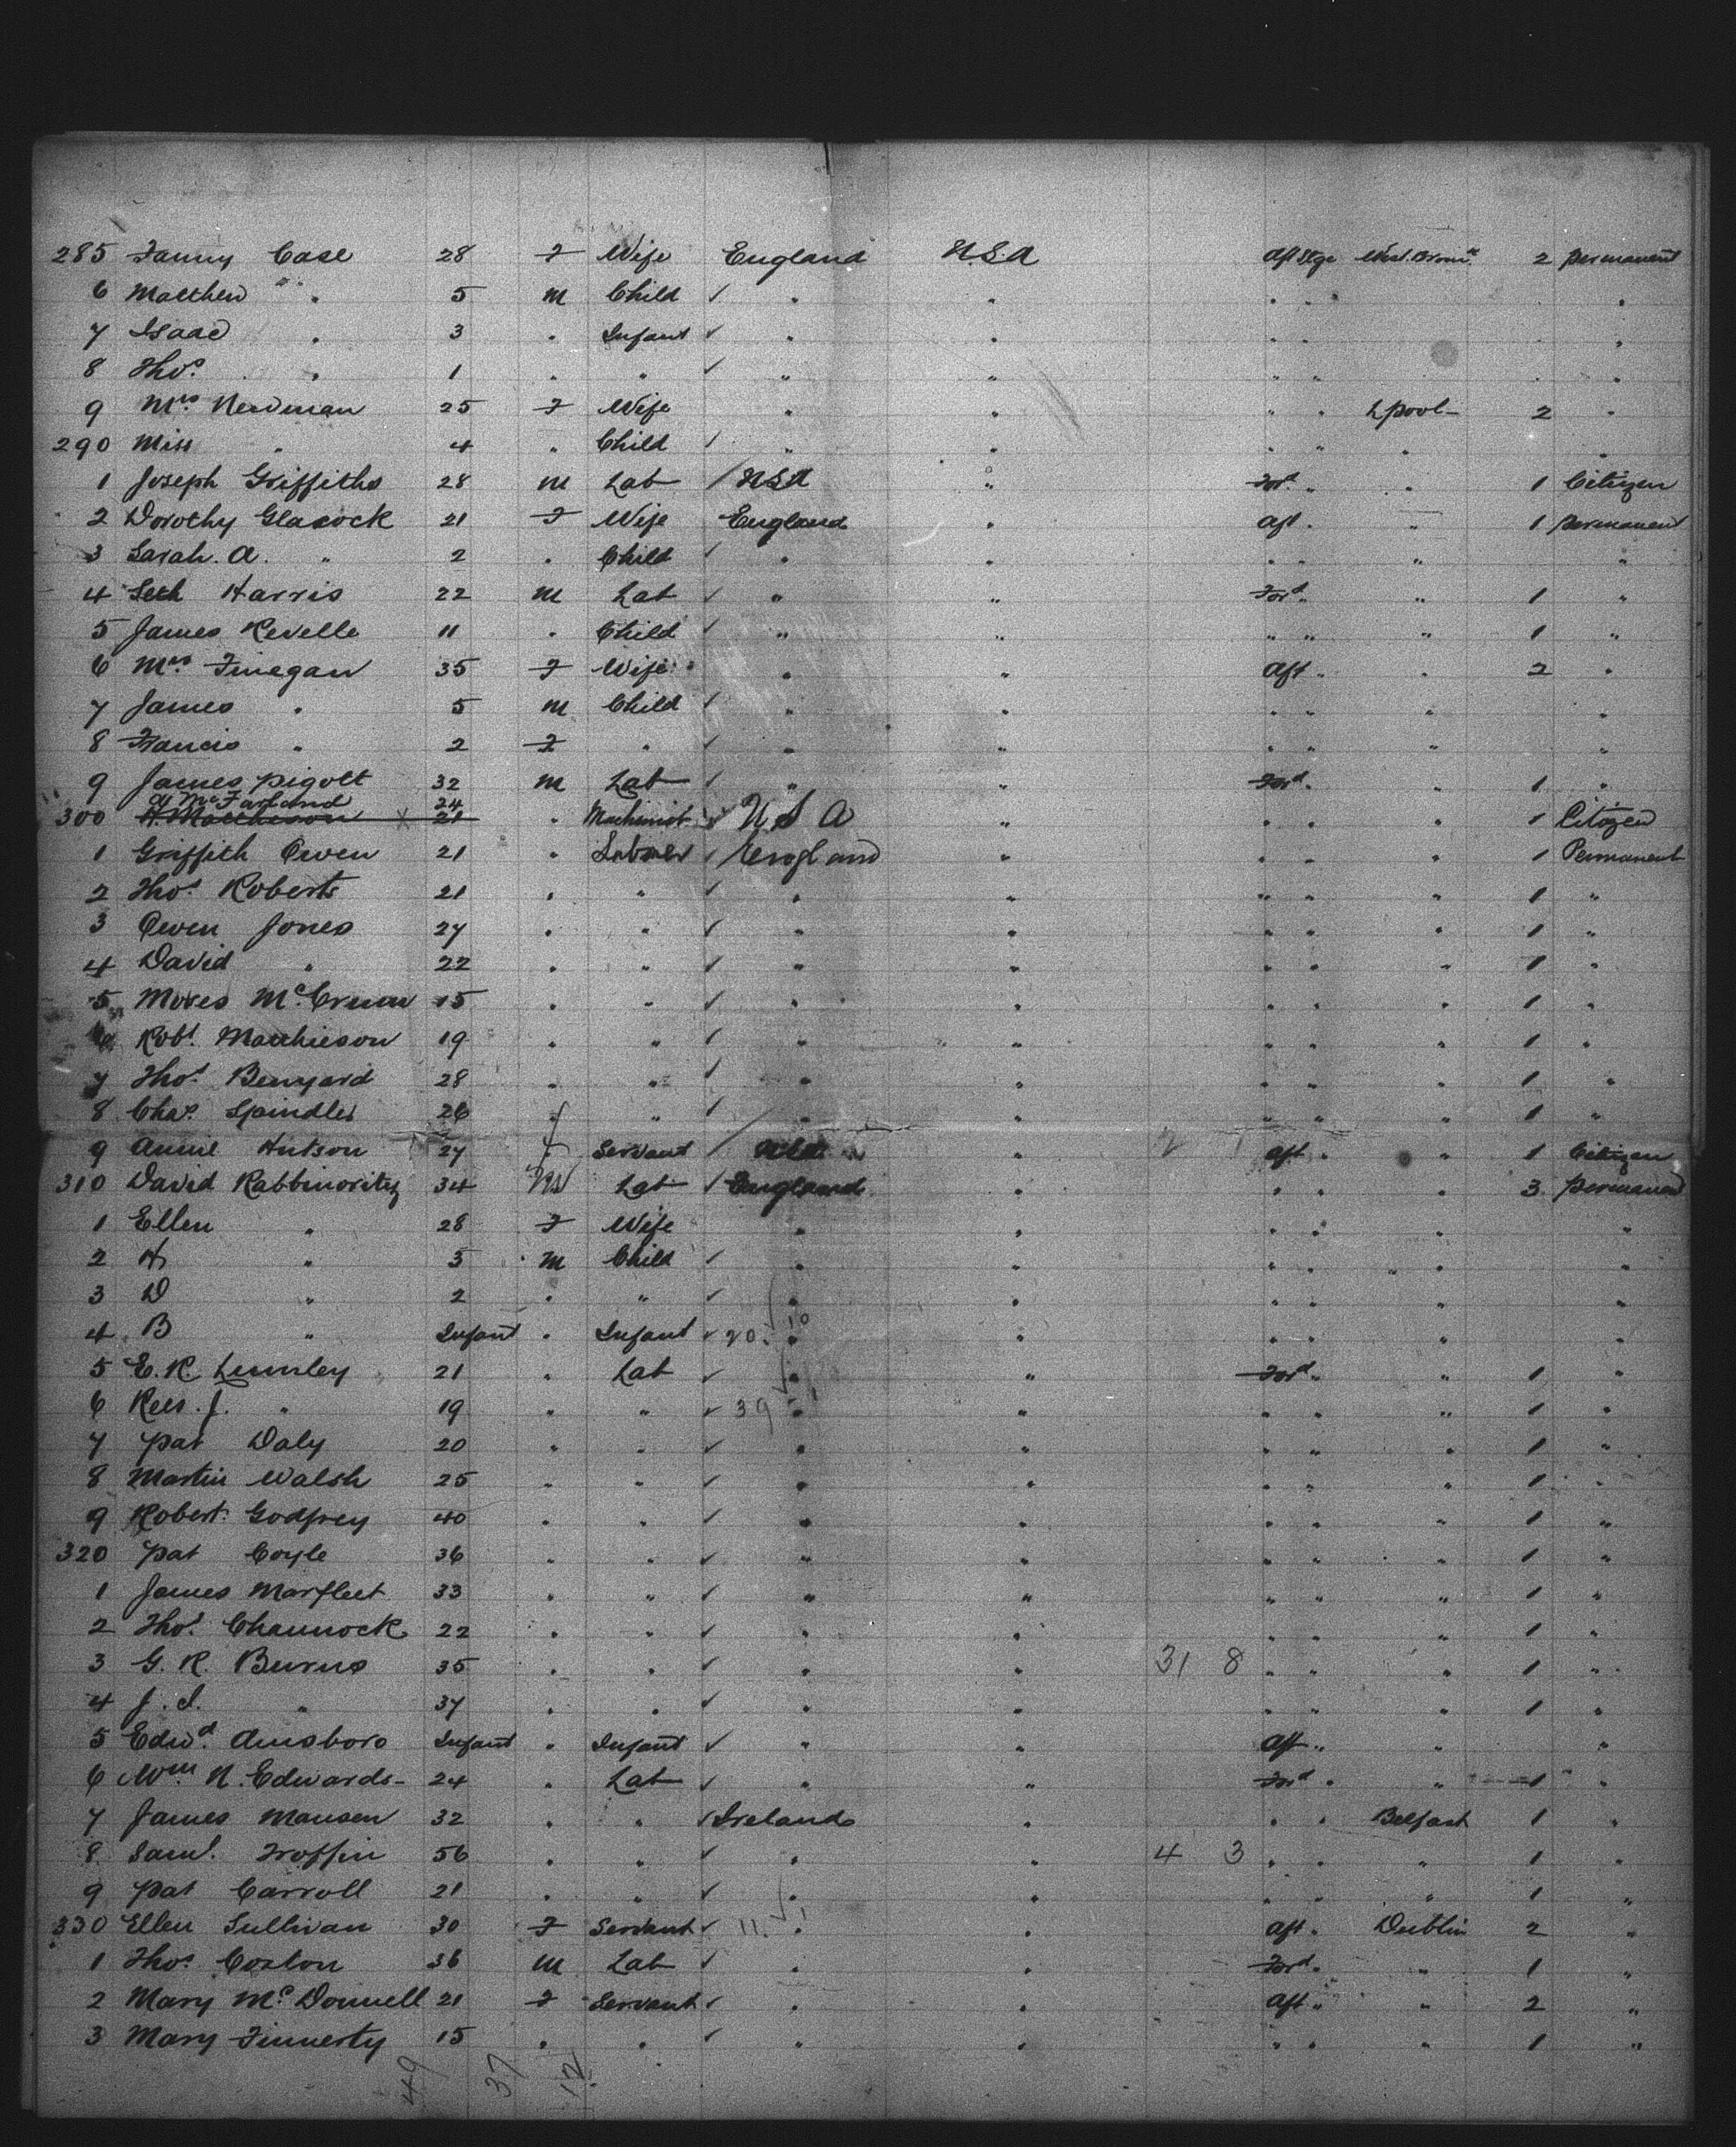 285 Fanny Case 28 F Wife England U.S.A Aft Stge 2 permanent
6 Matthew " 5 m Child ✓ " " " " "
7 Isaac " 3 " Infant ✓ " " " " "
8 Thos. " 1 " " ✓ " " " " "
9 Mrs Newman 25 F Wife " " " " L'pool 2 "
290 Miss " 4 " Child / " " " " " "
1 Joseph Griffiths 28 m Lab / USA " Ford. " " 1 Citizen
2 Dorothy Glasock 21 F Wife England " Aft. " 1 permanent
3 Sarah. A. " 2 " Child ✓ " " " " " "
4 Seth Harris 22 m Lab ✓ " " Ford " " 1 "
5 James Revelle 11 " Child ✓ " " " " " 1 "
6 Mrs Finegan 35 F Wife " " Aft " " 2 "
7 James " 5 m Child ✓ " " " " " "
8 Francis " 2 F " ✓ " " " " " "
9 James Pigott 32 m Lab ✓ " " Ford " 1 "
McFarland 24
300 Matthieson × 21 " Machinist ✓ U S A " " " " 1 Citizen
1 Griffith Owen 21 " Labourer ✓ England " " " " 1 Permanent
2 Thos. Roberts 21 " " ✓ " " " " " 1 "
3 Owen Jones 27 " " ✓ " " " " " 1 "
4 David " 22 " " ✓ " " " " " 1 "
5 Moses Mc 15 " " ✓ " " " " " 1 "
6 Robt. Matthieson 19 " " ✓ " " " " " 1 "
7 Thos. Benyard 28 " " ✓ " " " " 1 "
8 Chas. Spindler 26 " " ✓ " " " " " 1 "
9 Annie Hutson 27 f Servant / USA " 2 Aft " " 1 Citizen
310 David Rabbinovitz 34 M Lab ✓ England " " " " 3 permanent
1 Ellen " 28 F Wife " " " " " "
2 H " 5 m Child ✓ " " " " " "
3 D " 2 " " ✓ " " " " " "
4 B " Infant " Infant ✓ 20. 10 " " " " " "
5 E. R. Lumley 21 " Lab ✓ " " Ford " " 1 "
6 Rees. J. " 19 " " ✓ 39 " " " " " 1 "
7 Pat Daly 20 " " ✓ " " " " " 1 "
8 Martin Walsh 25 " " ✓ " " " " " 1 "
9 Robert Godfrey 40 " " ✓ " " " " " 1 "
320 Pat Coyle 36 " " ✓ " " " " " 1 "
1 James Marfleet 33 " " ✓ " " " " " 1 "
2 Thos. Charnock 22 " " ✓ " " " " " 1 "
3 G. R. Burns 35 " " ✓ " " 31 8 " " " 1 "
4 J. I. " 37 " " ✓ " " " " " 1 "
5 Edwd. Ainsboro Infant " Infant ✓ " " Aft " " "
6 Wm. N. Edwards 24 " Lab ✓ " " Ford " " 1 "
7 James Mansen 32 " " ✓ Ireland " " " Belfast 1 "
8 Saml. Troffin 56 " " ✓ " " 4 3 " " " 1 "
9 Pat Carroll 21 " " ✓ " " " " " 1 "
330 Ellen Sullivan 30 F Servant ✓ 11. 1 " " Aft " Dublin 2 "
1 Thos. Coxton 36 m Lab ✓ " " Ford " " 1 "
2 Mary McDonnell 21 F Servant ✓ " " Aft " " 2 "
3 Mary Finnerty 15 " " ✓ " " " " " 1 "
49 37 12